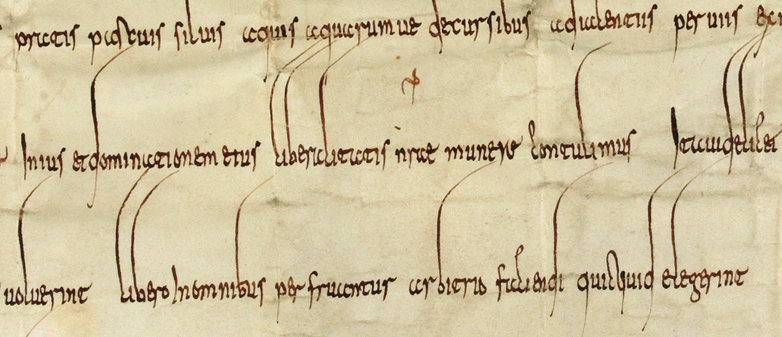 pratis pascuis siluis aquis aquarumue decursibus adiacentiis peruiis
Inius et dominationem et us liberalitatis nr̄ae munere contulimus Ita ut
uoluerint libero In omnibus perfruantur arbitrio faciendi quicquid elegerint